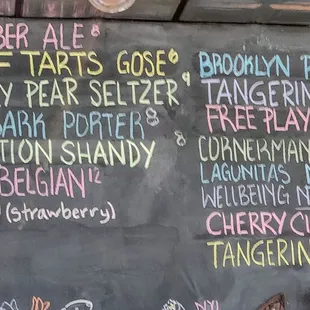 BER ALE 8
F TARTS GOSE 8
Y PEAR SELTZER 9
BARK PORTER 8
TION SHANDY 8
BELGIAN 12
(strawberry)
BROOKLYN P
TANGERIN
FREE PLAY
CORNERMAN
LAGUNITAS
WELLBEING N
CHERRY CI
TANGERIN